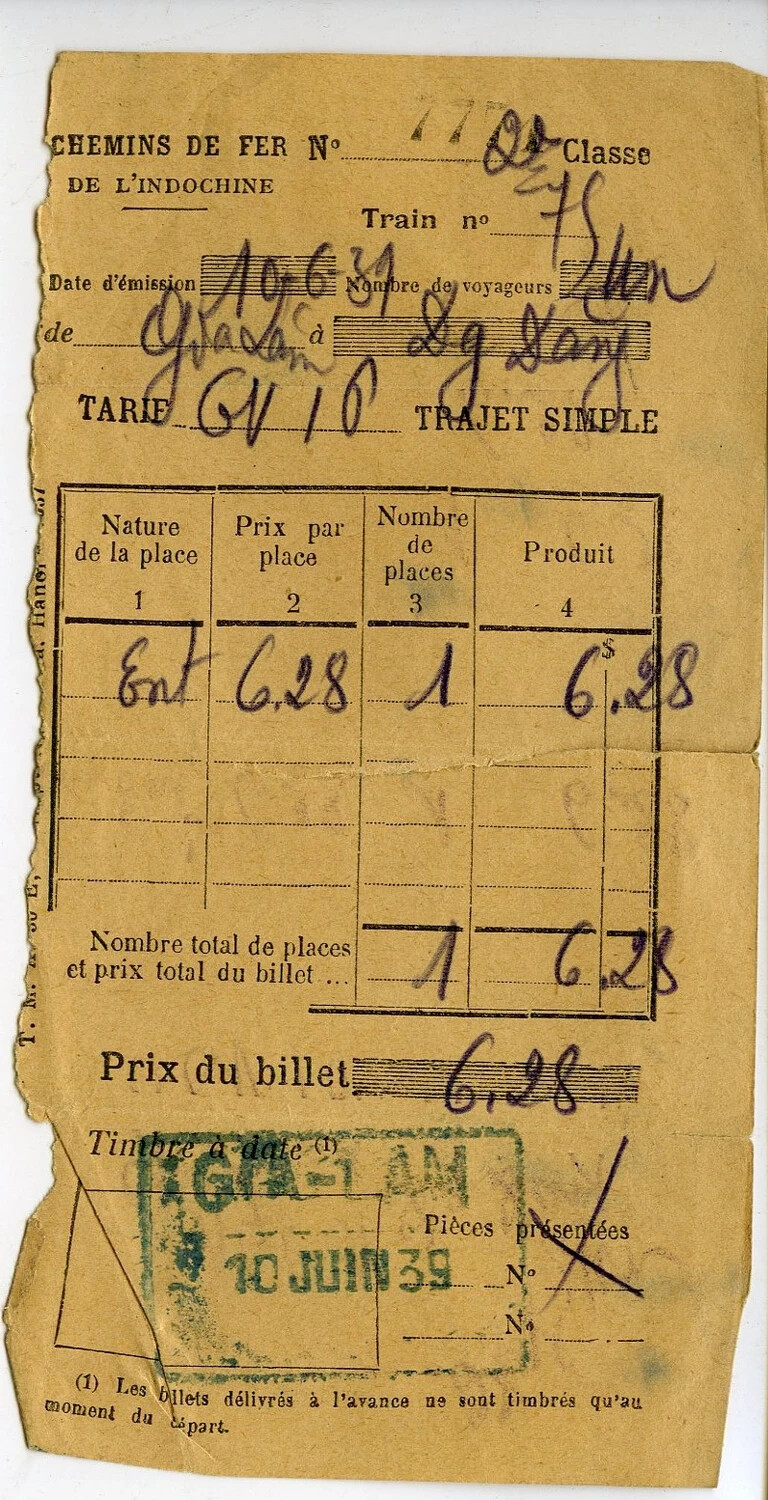 CHEMINS DE FER N° 777 2e Classe
DE L'INDOCHINE
Train n° 75
Date d'émission 10-6-39 Nombre de voyageurs Un
de Gia Lam à Dg Dang
TARIF GV 16 TRAJET SIMPLE
Nature de la place
1
Prix par place
2
Nombre de places
3
Produit
4
$
Ent 6.28 1 6.28
Nombre total de places
et prix total du billet ... 1 6.28
Prix du billet 6.28
Timbre à date (1)
GIA-LAM
10 JUIN 39
Pièces présentées
N°
N°
(1) Les billets délivrés à l'avance ne sont timbrés qu'au
moment du départ.